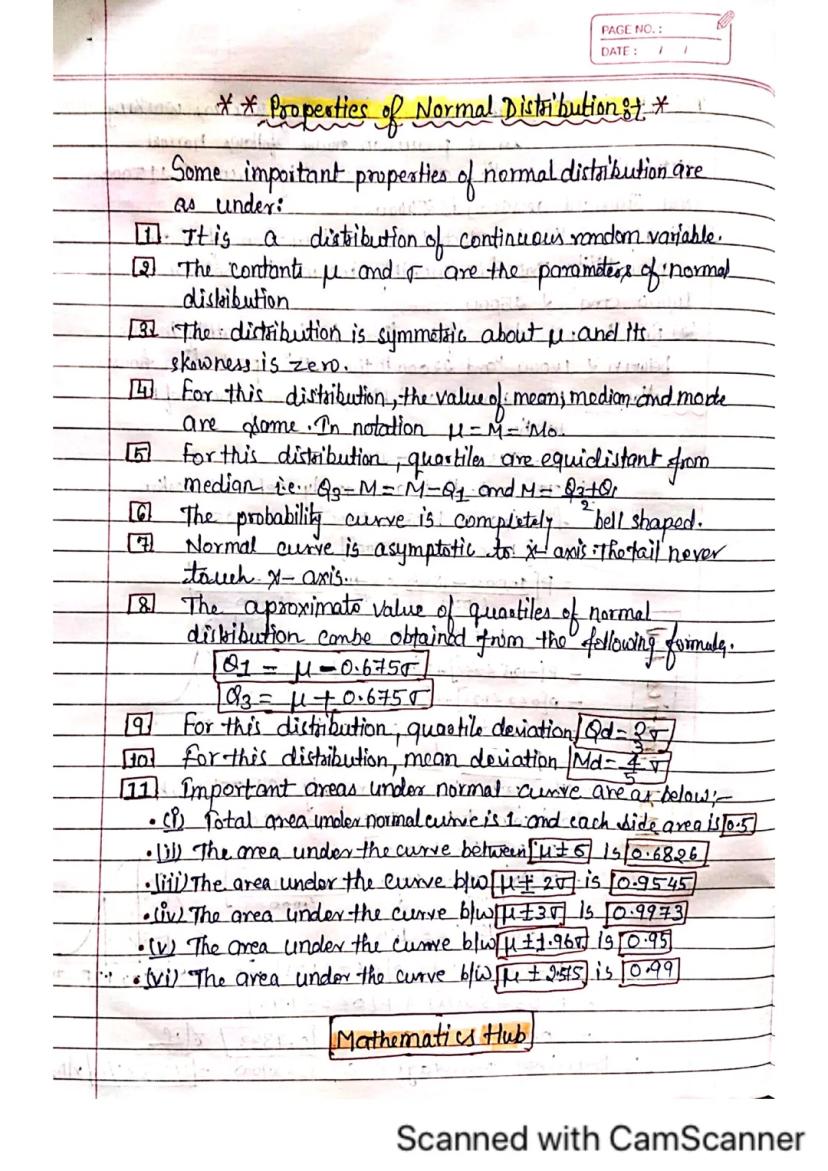 PAGE NO.:
DATE: / /
** Properties of Normal Distribution :- *
Some important properties of normal distribution are
as under:
1. It is a distribution of continuous random variable.
2 The contants μ and σ are the parameters of normal
distribution
3. The distribution is symmetric about μ and its
skewness is zero.
4 For this distribution, the value of mean, median and mode
are same. In notation μ = M = Mo.
5 For this distribution, quartiles are equidistant from
median i.e. Q3-M = M-Q1 and M = Q3+Q1/2
6 The probability curve is completely bell shaped.
7 Normal curve is asymptotic to x-axis. The tail never
touch x-axis.
8 The aproximate value of quartiles of normal
distribution can be obtained from the following formula.
Q1 = μ - 0.675σ
Q3 = μ + 0.675σ
9 For this distribution, quartile deviation Qd = 2/3 σ
10 For this distribution, mean deviation Md = 4/5 σ
11 Important areas under normal curve are as below:-
• (i) Total area under normal curve is 1 and each side area is 0.5
• (ii) The area under the curve between μ ± σ is 0.6826
• (iii) The area under the curve b/w μ ± 2σ is 0.9545
• (iv) The area under the curve b/w μ ± 3σ is 0.9973
• (v) The area under the curve b/w μ ± 1.96σ is 0.95
• (vi) The area under the curve b/w μ ± is 0.99
Mathematics Hub
Scanned with CamScanner